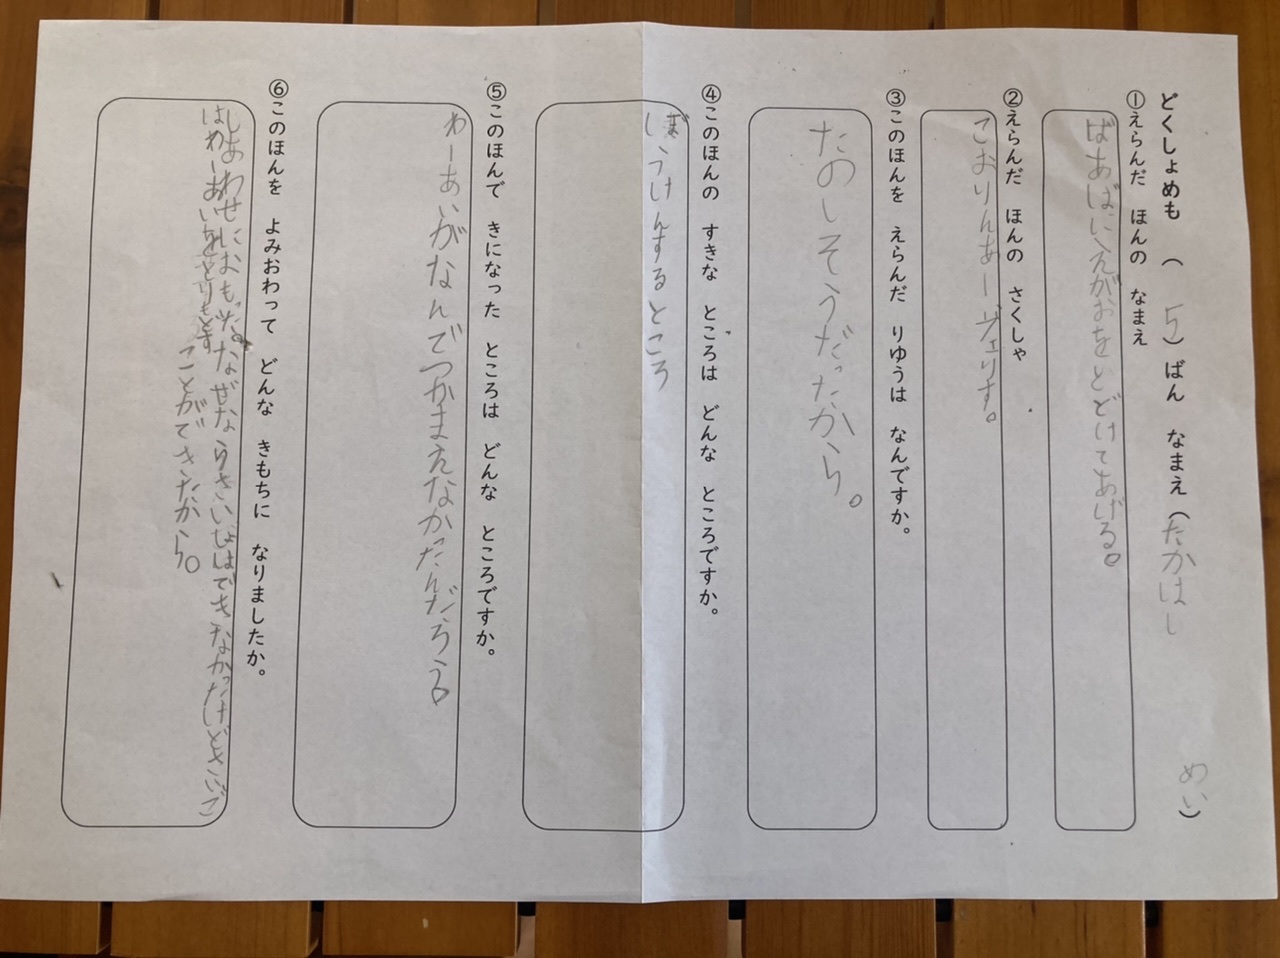 どくしょめも （ 5）ばん なまえ（たかはし めい）
①えらんだ ほんの なまえ
ばあばにえがおをとどけてあげる。
②えらんだ ほんの さくしゃ
こおりんあーゔぇりす。
③このほんを えらんだ りゆうは なんですか。
たのしそうだったから。
④このほんの すきな ところは どんな ところですか。
ぼうけんするところ
⑤このほんで きになった ところは どんな ところですか。
わーあいがなんでつかまえなかったんだろう。
⑥このほんを よみおわって どんな きもちに なりましたか。
しあわせにおもった。なぜならさいしょはできなかったけどさいご
はわーあいをとりもどす
ことができたから。